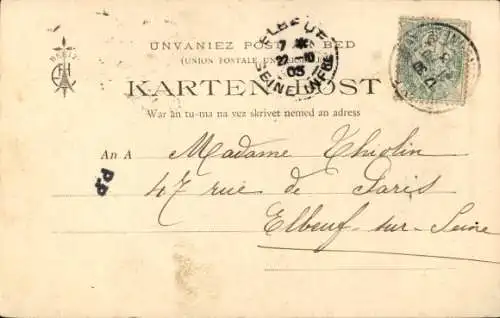 BREIZ
UNVANIEZ POST AR BED
(UNION POSTALE UNIVERSELLE)
KARTEN-POST
War an tu-ma na vez skrivet nemed an adress
ELBEUF
7 22 -10
05
SEINE INFRE
An A Madame Thiolin
47 rue de Paris
Elbeuf-sur-Seine
P.P